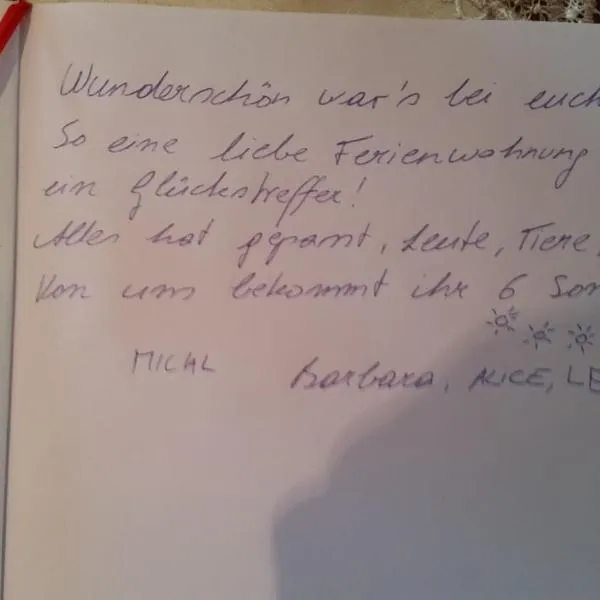 Wunderschön war's bei euch
So eine liebe Ferienwohnung
ein Glückstreffer!
Alles hat gepasst, Leute, Tiere,
Von uns bekommt ihr 6 Son
MICHL Barbara, ALICE, LE